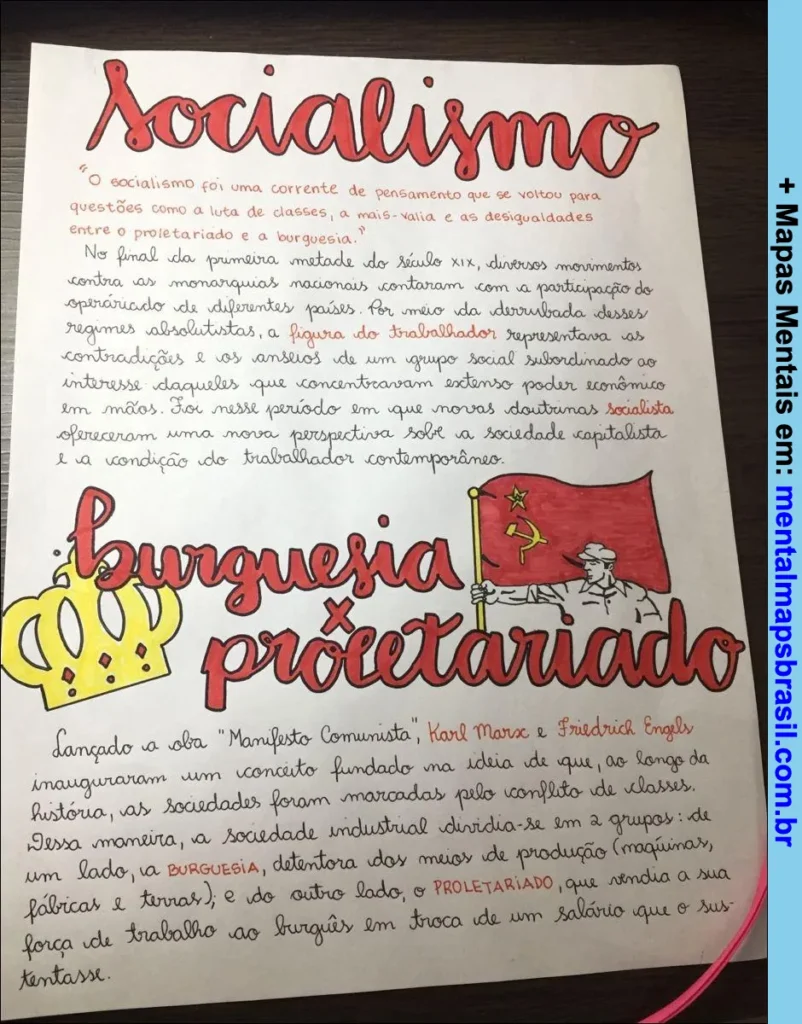 socialismo
"O socialismo foi uma corrente de pensamento que se voltou para
questões como a luta de classes, a mais-valia e as desigualdades
entre o proletariado e a burguesia."
No final da primeira metade do século XIX, diversos movimentos
contra as monarquias nacionais contaram com a participação do
operáriado de diferentes países. Por meio da derrubada desses
regimes absolutistas, a figura do trabalhador representava as
contradições e os anseios de um grupo social subordinado ao
interesse daqueles que concentravam extenso poder econômico
em mãos. Foi nesse período em que novas doutrinas socialista
ofereceram uma nova perspectiva sobe a sociedade capitalista
e a condição do trabalhador contemporâneo.
burguesia
x
proletariado
Lançado a oba "Manifesto Comunista", Karl Marx e Friedrich Engels
inauguraram um conceito fundado na ideia de que, ao longo da
história, as sociedades foram marcadas pelo conflito de classes.
Dessa maneira, a sociedade industrial dividia-se em 2 grupos: de
um lado, a BURGUESIA, detentora dos meios de produção (maqüinas,
fábricas e terras); e do outro lado, o PROLETARIADO, que vendia a sua
força de trabalho ao burguês em troca de um salário que o sus-
tentasse.
+ Mapas Mentais em: mentalmapsbrasil.com.br